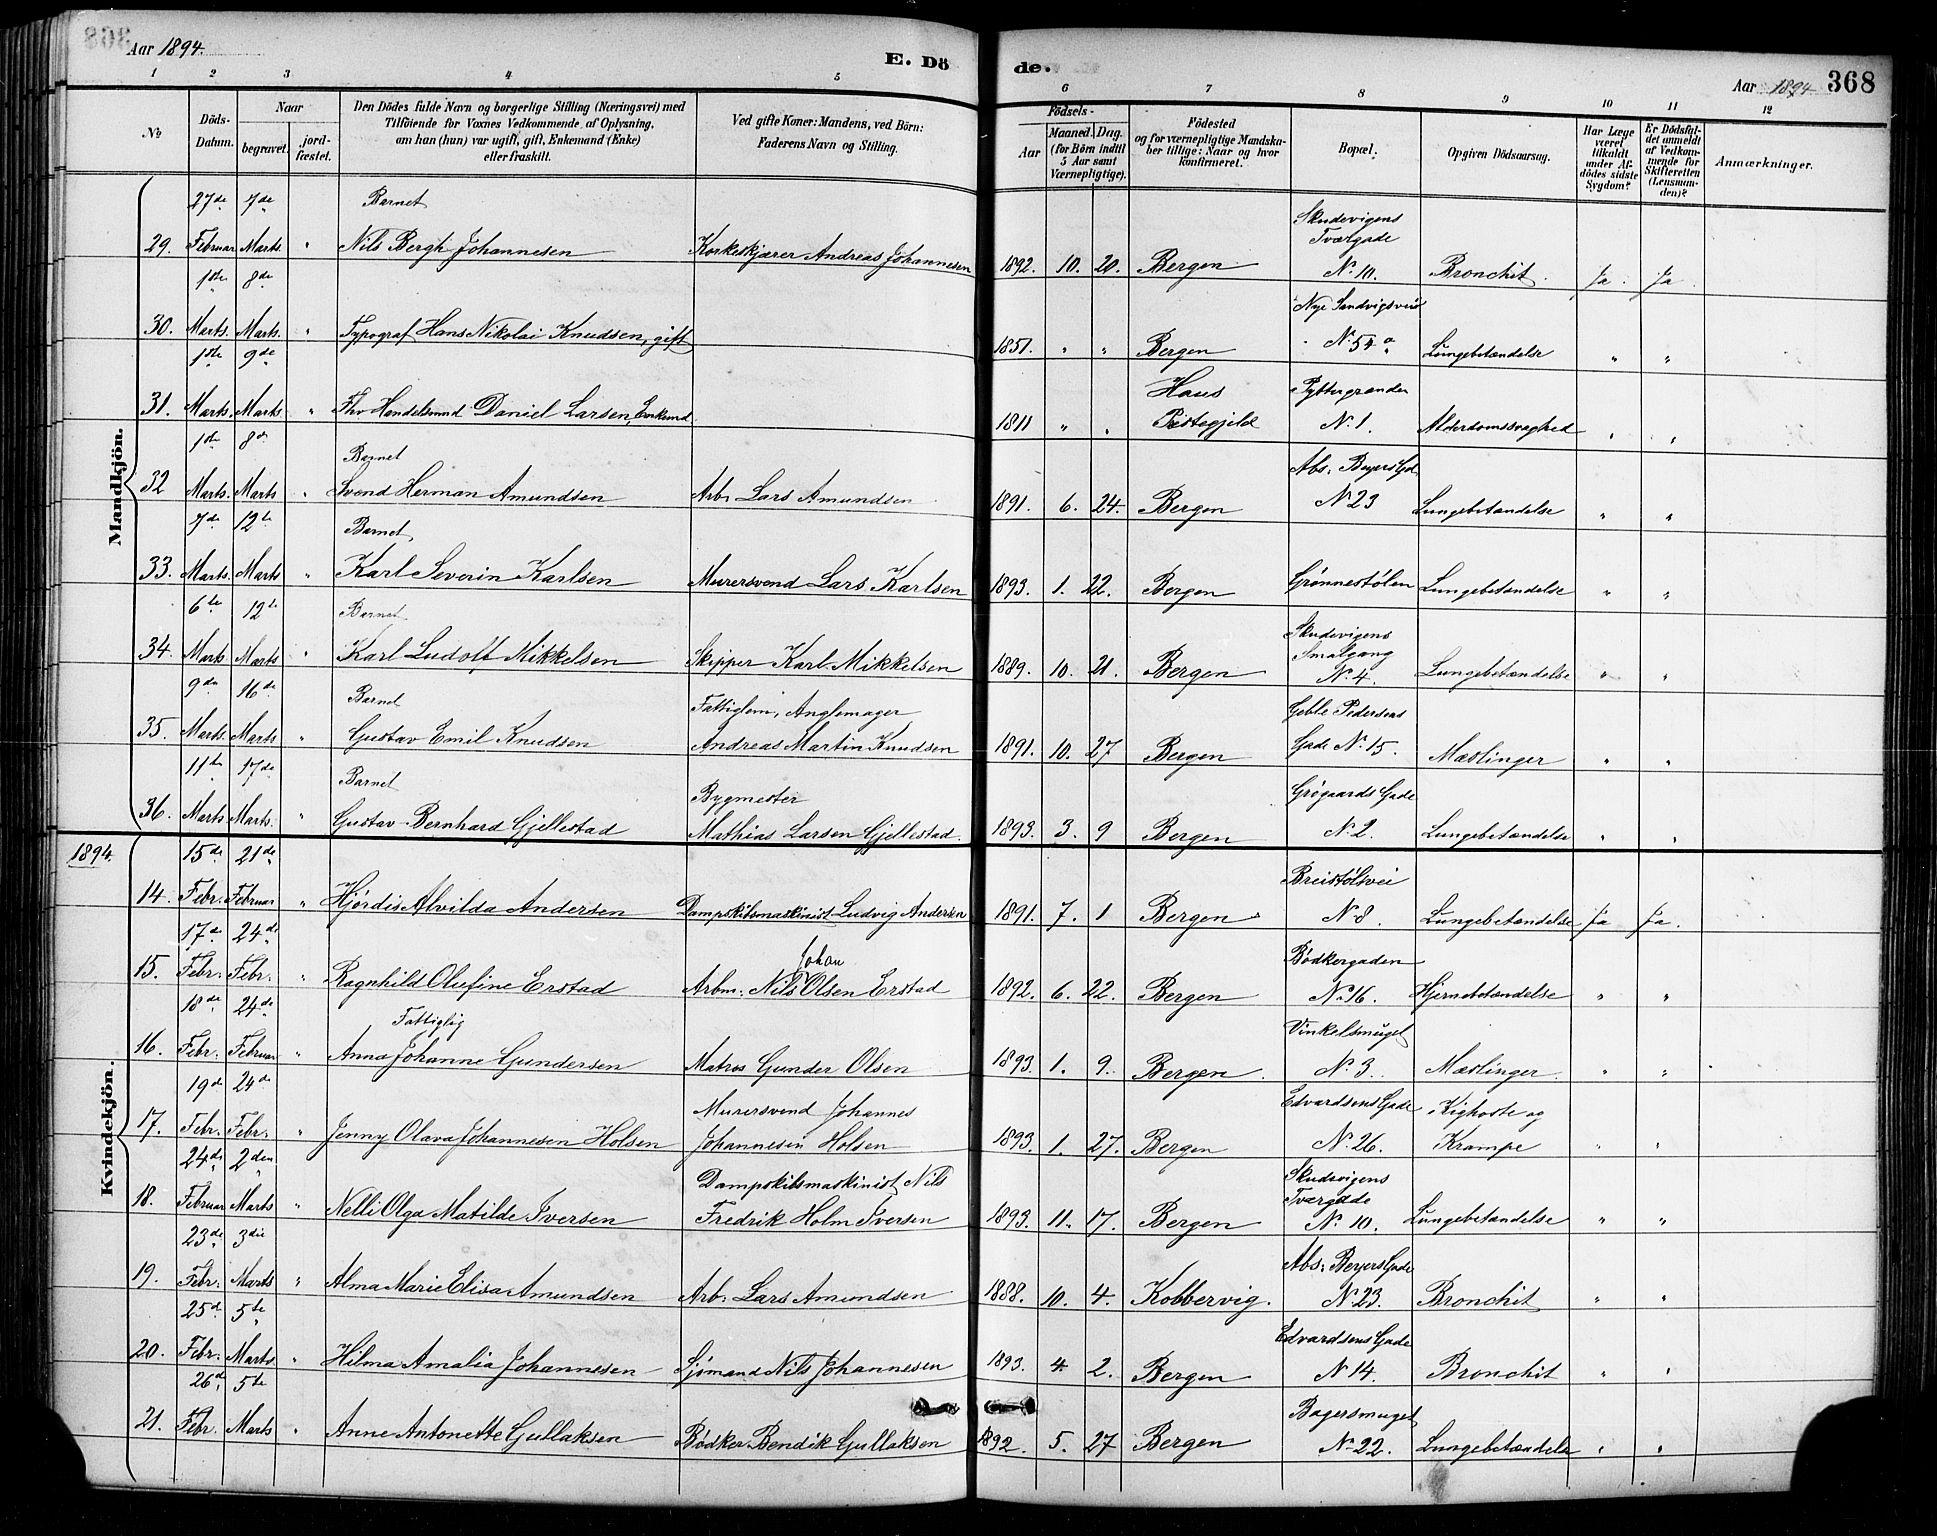 Aar 1894.
E. Dö
de.
Aar 1894
368
1 2 3 4 5 6 7 8 9 10 11 12
No
Döds-
Datum.
Naar
begravet.
jord-
fæstet.
Den Dödes fulde Navn og borgerlige Stilling (Næringsvei) med
Tilföiende for Voxnes Vedkommende af Oplysning,
om han (hun) var ugift, gift, Enkemand (Enke)
eller fraskilt.
Ved gifte Koner: Mandens, ved Börn:
Faderens Navn og Stilling.
Födsels-
Aar
Maaned. Dag.
(for Börn indtil
5 Aar samt
Værnepligtige).
Födested
og for værnepligtige Mandska-
ber tillige: Naar og hvor
konfirmeret.
Bopæl.
Opgiven Dödsaarsag.
Har Læge
været
tilkaldt
under Af-
dödes sidste
Sygdom?
Er Dödsfal-
det anmeldt
af Vedkom-
mende for
Skifteretten
(Lensman-
den)?
Anmærkninger.
Mandkjön.
27de 7de Barnet Skudevigens
Tværgade
29. Februar Marts " Nils Bergh Johannesen Korkeskjærer Andreas Johannesen 1892. 10. 20. Bergen N. 10. Bronchit. Ja. Ja.
1ste 8de Nye Sandvigsvei
30. Marts. Marts. " Typograf Hans Nikolai Knudsen, gift 1851. " " Bergen N. 54a Lungebetændelse " "
1ste 9de Haus Pyttergrænden
31. Marts. Marts " Fhv Handelsmnd Daniel Larsen, Enkemd. 1811 " " Præstegjeld N. 1. Alderdomssvaghed " "
1ste 8de Barnet Abs. Beyers Gd
32 Marts. Marts " Svend Herman Amundsen Arb. Lars Amundsen 1891. 6. 24. Bergen N 23 Lungebetændelse " "
7de 12te Barnet
33. Marts. Marts " Karl Severin Karlsen Murersvend Lars Karlsen 1893. 1. 22. Bergen Grønnestølen Lungebetændelse " "
6te 12te Barnet Skudevigens
Smalgang
34. Marts Marts " Karl Ludolf Mikkelsen Skipper Karl Mikkelsen 1889. 10. 21. Bergen N. 4. Lungebetændelse " "
9de 16de Barnet Fattiglem, Anglemager Geble Pedersens
35. Marts. Marts " Gustav Emil Knudsen Andreas Martin Knudsen 1891. 10. 27 Bergen Gade N. 15. Mæslinger " "
11te 17de Barnet Bygmester Grøgaards Gade
36. Marts Marts. " Gustav Bernhard Gjellestad Mathias Larsen Gjellestad. 1893. 3. 9 Bergen N. 2. Lungebetændelse " "
1894.
Kvindekjön.
15de 21de Breistølsvei
14. Febr. Februar " Hjørdis Alvilda Andersen Dampskibsmaskinist Ludvig Andersen 1891. 7. 1 Bergen N. 8. Lungebetændelse Ja Ja.
17de 24de Johan Bødkergaden
15. Febr. Febr. " Ragnhild Olufine Erstad Arbm. Nils Olsen Erstad 1892. 6. 22. Bergen N. 16. Hjernebetændelse " "
18de 24de Fattiglig Vinkelsmuget
16. Febr. Februar " Anna Johanne Gundersen Matros Gunder Olsen 1893. 1. 9. Bergen. N. 3. Mæslinger. " "
19de 24de Murersvend Johannes Edvardsens Gade Kighoste og
17. Febr. Febr. " Jenny Olava Johannesen Holsen Johannesen Holsen 1893. 1. 27. Bergen N. 26. Krampe " "
24de 2den Dampskibsmaskinist Nils Skudevigens
Tværgade
18. Februar Marts " Nelli Olga Matilde Iversen Fredrik Holm Iversen 1893. 11. 17. Bergen N. 10. Lungebetændelse " "
23de 3die Abs. Beyers Gade
19. Febr. Marts " Alma Marie Elisa Amundsen Arb. Lars Amundsen 1888. 10. 4. Kobbervig. N. 23. Bronchit " "
25de 5te Edvardsens Gade
20. Febr. Marts. " Hilma Amalia Johannesen Sjømand Nils Johannesen 1893. 4. 2. Bergen N 14. Bronchit " "
26de 5te Bagersmuget
21. Febr. Marts " Anne Antonette Gullaksen Bødker Bendik Gullaksen 1892. 5. 27 Bergen N. 22. Lungebetændelse " "